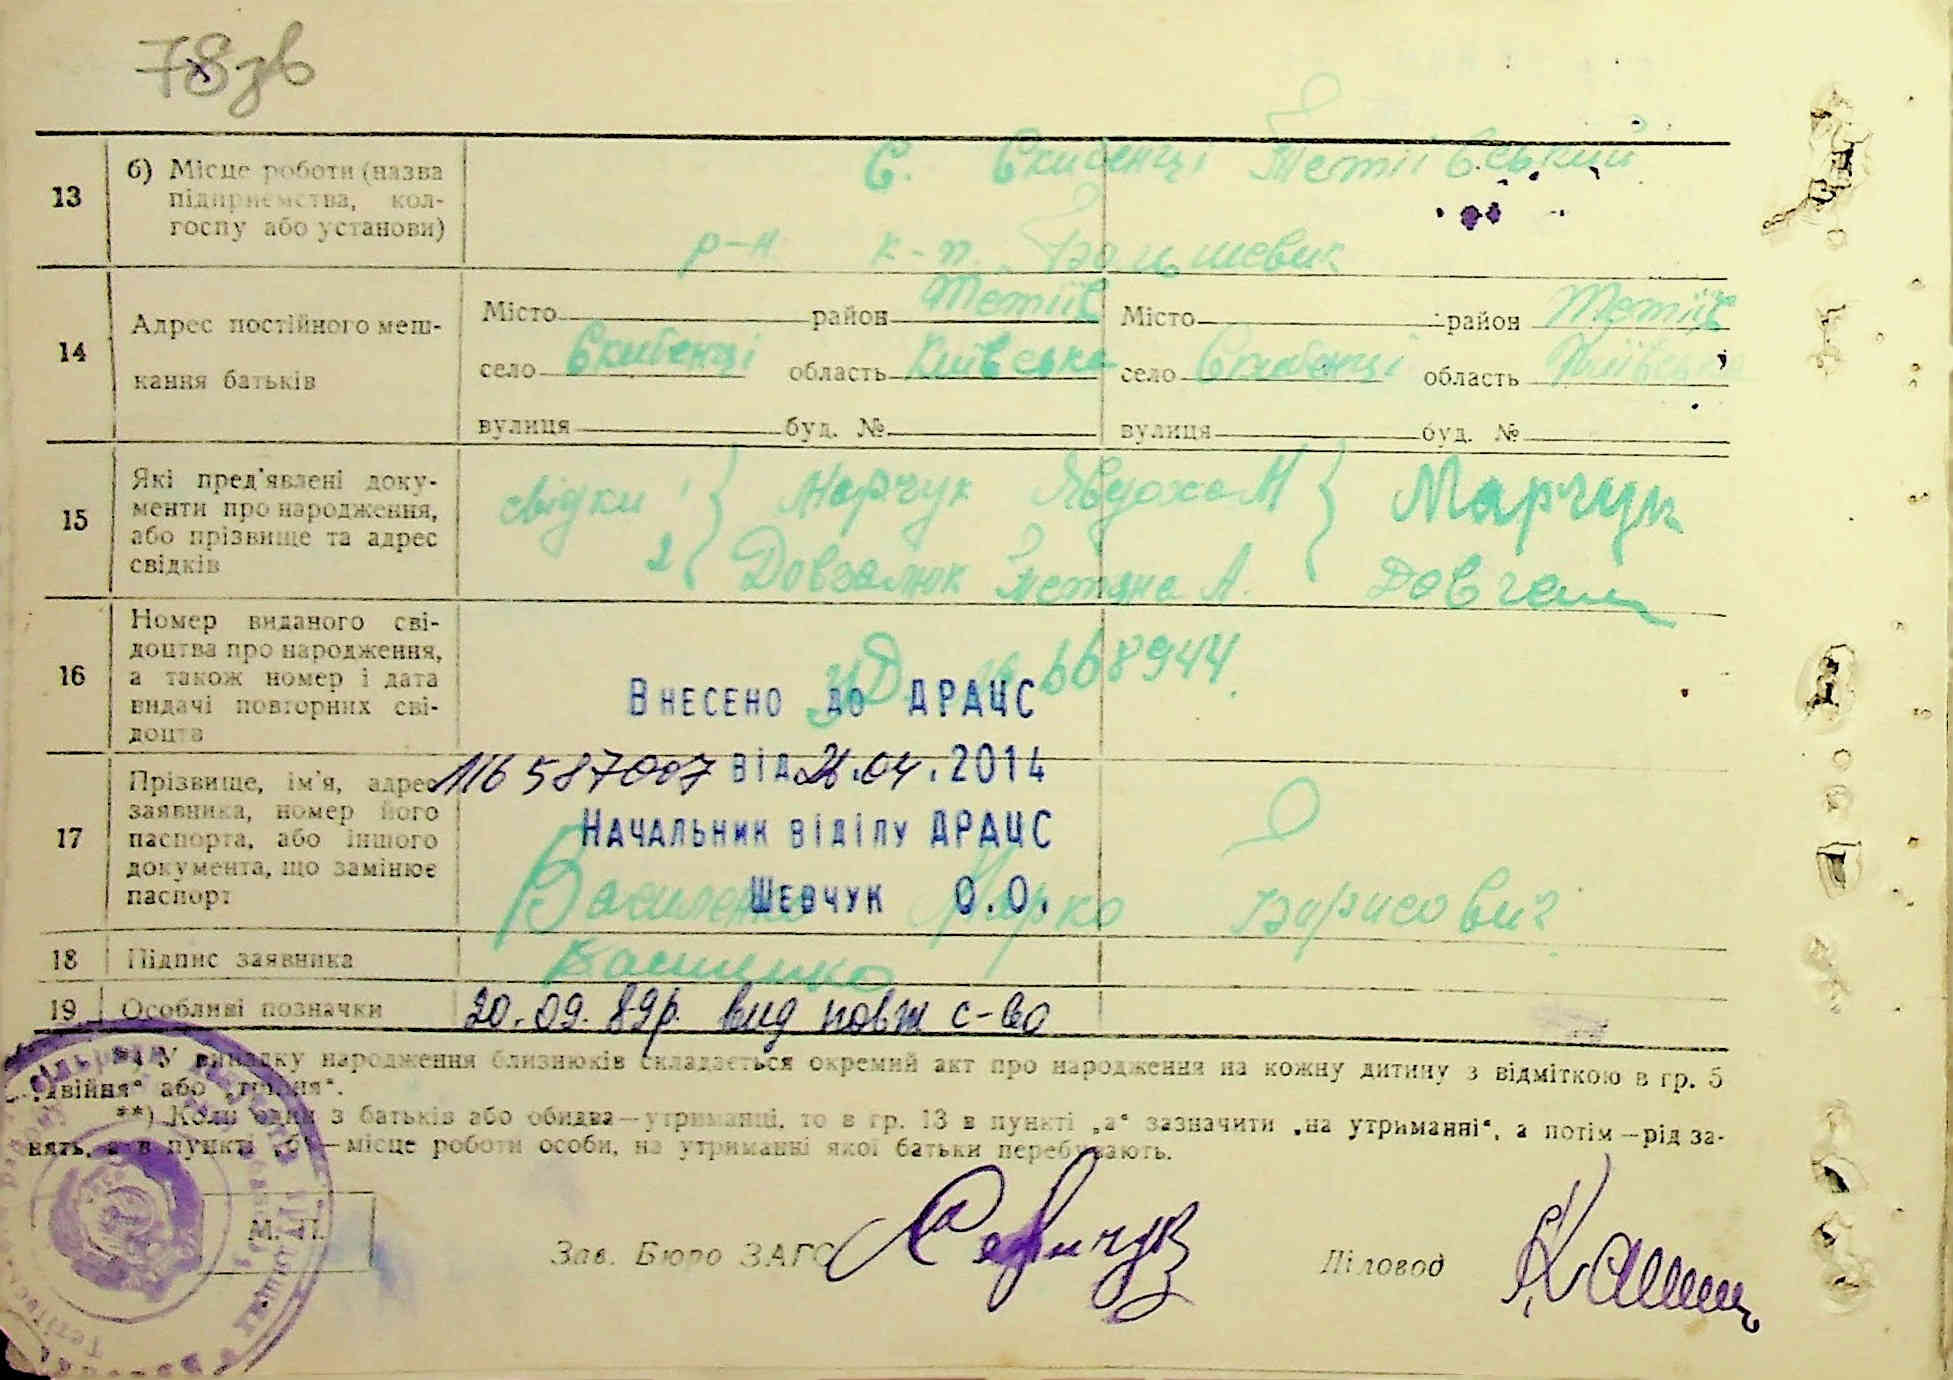 78зв
13 б) Місце роботи (назва підприємства, колгоспу або установи)
с. Скибенці Тетіївський
р-н к-п. Большевик
14 Адрес постійного мешкання батьків
Місто район Тетіїв Місто район Тетіїв
село Скибенці область Київська село Скибенці область Київська
вулиця буд. № вулиця буд. №
15 Які пред'явлені документи про народження, або прізвище та адрес свідків
свідки 1 Марчук Явдоха М Марчук
2 Довгалюк Тетяна А. Довгалю
16 Номер виданого свідоцтва про народження, а також номер і дата видачі повторних свідоцтв
668944
Внесено до ДРАЦС
116587007 від 26.04.2014
Начальник відділу ДРАЦС
Шевчук О.О.
17 Прізвище, ім'я, адрес заявника, номер його паспорта, або іншого документа, що замінює паспорт
Василенко Марко Борисович
18 Підпис заявника
19 Особливі позначки 20.09.89р. вид повт с-во
*) У випадку народження близнюків складається окремий акт про народження на кожну дитину з відміткою в гр. 5
„двійня“ або „трійня“.
**) Коли один з батьків або обидва—утриманці, то в гр. 13 в пункті „а“ зазначити „на утриманні“, а потім—рід за-
нять, а в пункті „б“—місце роботи особи, на утриманні якої батьки перебувають.
М. П.
Зав. Бюро ЗАГС Діловод